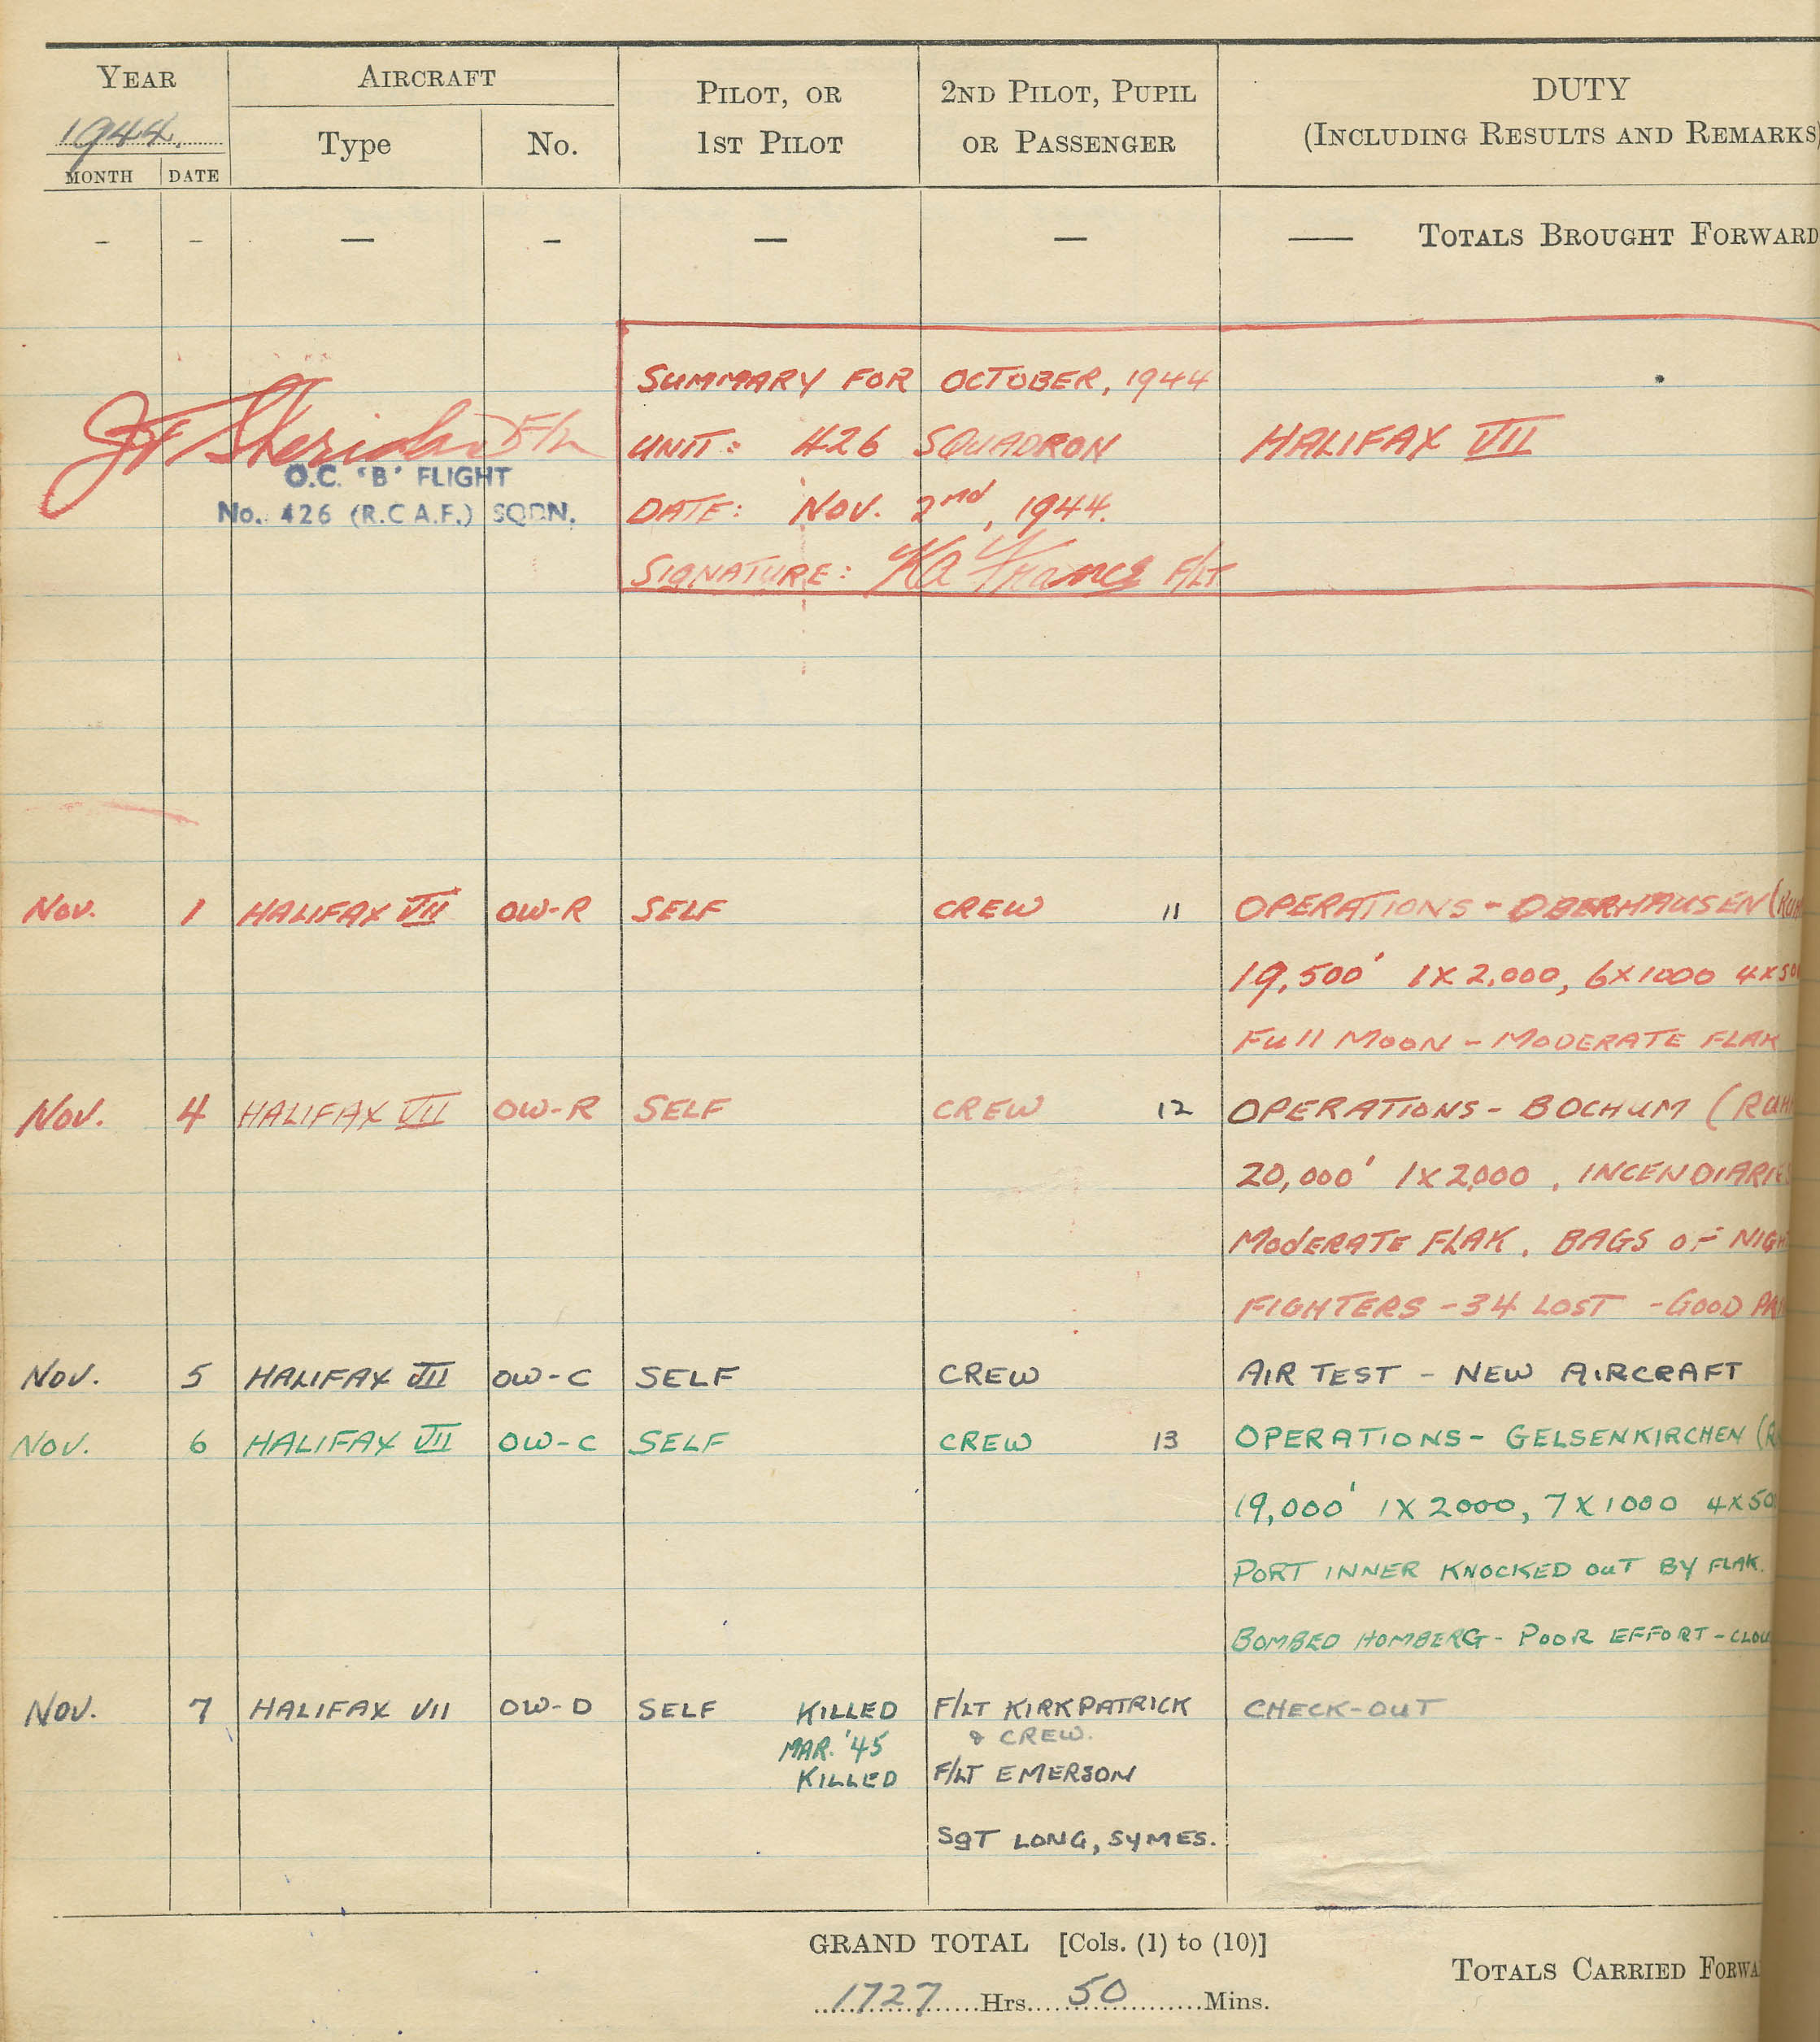 YEAR AIRCRAFT PILOT, OR 2ND PILOT, PUPIL DUTY
1944. Type No. 1ST PILOT OR PASSENGER (INCLUDING RESULTS AND REMARKS)
MONTH DATE
- - — - — — — TOTALS BROUGHT FORWARD
SUMMARY FOR OCTOBER, 1944
Sheridan UNIT: 426 SQUADRON HALIFAX VII
O.C. 'B' FLIGHT
No. 426 (R.C.A.F.) SQDN. DATE: NOV. 2nd, 1944.
SIGNATURE: F/LT
NOV. 1 HALIFAX VII OW-R SELF CREW 11 OPERATIONS - OBERHAUSEN
19,500' 1X2,000, 6X1000 4X
FULL MOON - MODERATE FLAK
NOV. 4 HALIFAX VII OW-R SELF CREW 12 OPERATIONS - BOCHUM
20,000' 1X2,000, INCENDIARIES
MODERATE FLAK. BAGS OF
FIGHTERS - 34 LOST - GOOD
NOV. 5 HALIFAX VII OW-C SELF CREW AIR TEST - NEW AIRCRAFT
NOV. 6 HALIFAX VII OW-C SELF CREW 13 OPERATIONS - GELSENKIRCHEN
19,000' 1X2000, 7X1000 4X
PORT INNER KNOCKED OUT BY FLAK.
BOMBED HOMBERG - POOR EFFORT -
NOV. 7 HALIFAX VII OW-D SELF KILLED F/LT KIRKPATRICK CHECK-OUT
MAR. '45 & CREW.
KILLED F/LT EMERSON
SgT LONG, SYMES.
GRAND TOTAL [Cols. (1) to (10)]
TOTALS CARRIED
1727 Hrs. 50 Mins.